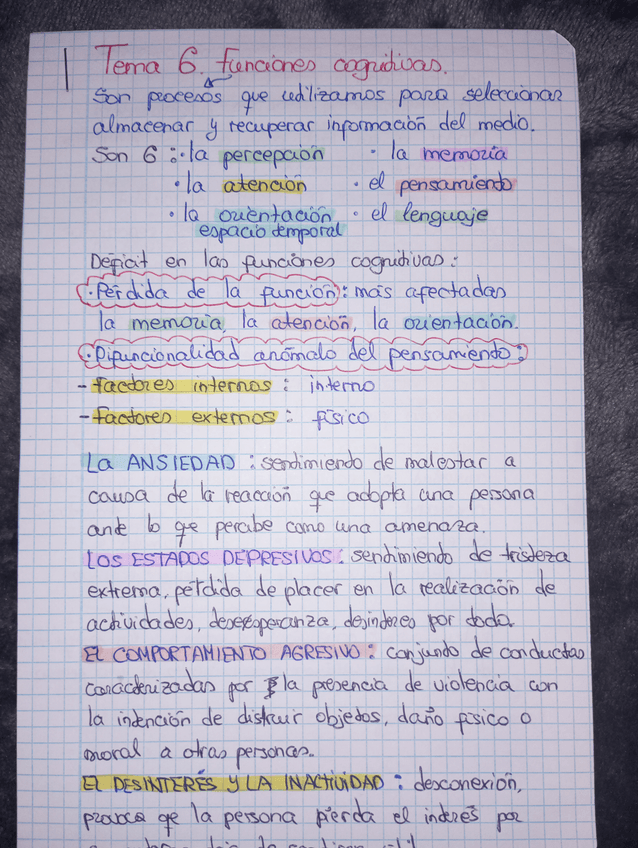 Tema 6. funciones cognitivas.
Son procesos que utilizamos para seleccionar
almacenar y recuperar información del medio.
Son 6: · la percepción · la memoria
· la atención · el pensamiento
· la orientación · el lenguaje
espacio temporal
Deficit en las funciones cognitivas:
· Pérdida de la función: más afectadas
la memoria, la atención, la orientación.
· Difuncionalidad anómalo del pensamiento:
- factores internos: interno
- factores externos: físico
La ANSIEDAD: sentimiento de malestar a
causa de la reacción que adopta una persona
ante lo qe percibe como una amenaza.
LOS ESTADOS DEPRESIVOS: sentimiento de tristeza
extrema, pérdida de placer en la realización de
actividades, desesperanza, desinteres por todo.
EL COMPORTAMIENTO AGRESIVO: conjunto de conductas
caracterizadas por la presencia de violencia con
la intención de distruir objetos, daño físico o
moral a otras personas.
EL DESINTERÉS Y LA INACTIVIDAD: desconexión,
provoca qe la persona pierda el interés por